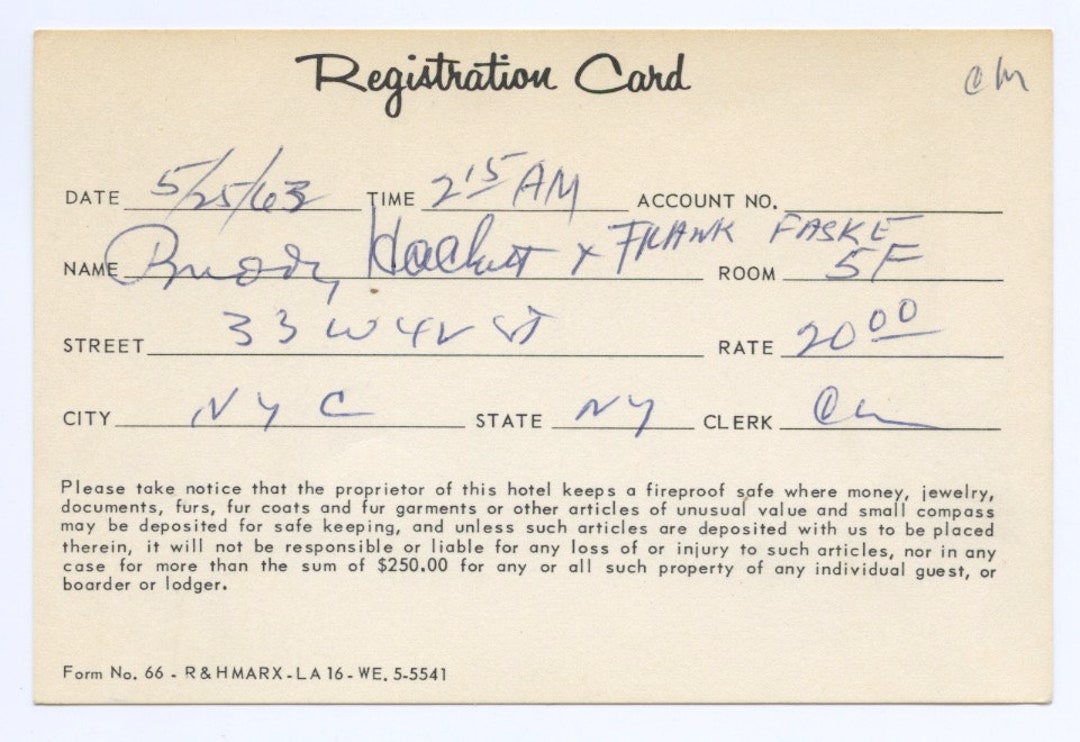 Registration Card
CM
DATE 5/25/63 TIME 2 15 AM ACCOUNT NO.
NAME Buddy Hackett + FRANK FASKE ROOM 5F
STREET 33 W 42 ST RATE 20 00
CITY NYC STATE NY CLERK
Please take notice that the proprietor of this hotel keeps a fireproof safe where money, jewelry,
documents, furs, fur coats and fur garments or other articles of unusual value and small compass
may be deposited for safe keeping, and unless such articles are deposited with us to be placed
therein, it will not be responsible or liable for any loss of or injury to such articles, nor in any
case for more than the sum of $250.00 for any or all such property of any individual guest, or
boarder or lodger.
Form No. 66 - R & H MARX - LA 16 - WE. 5-5541